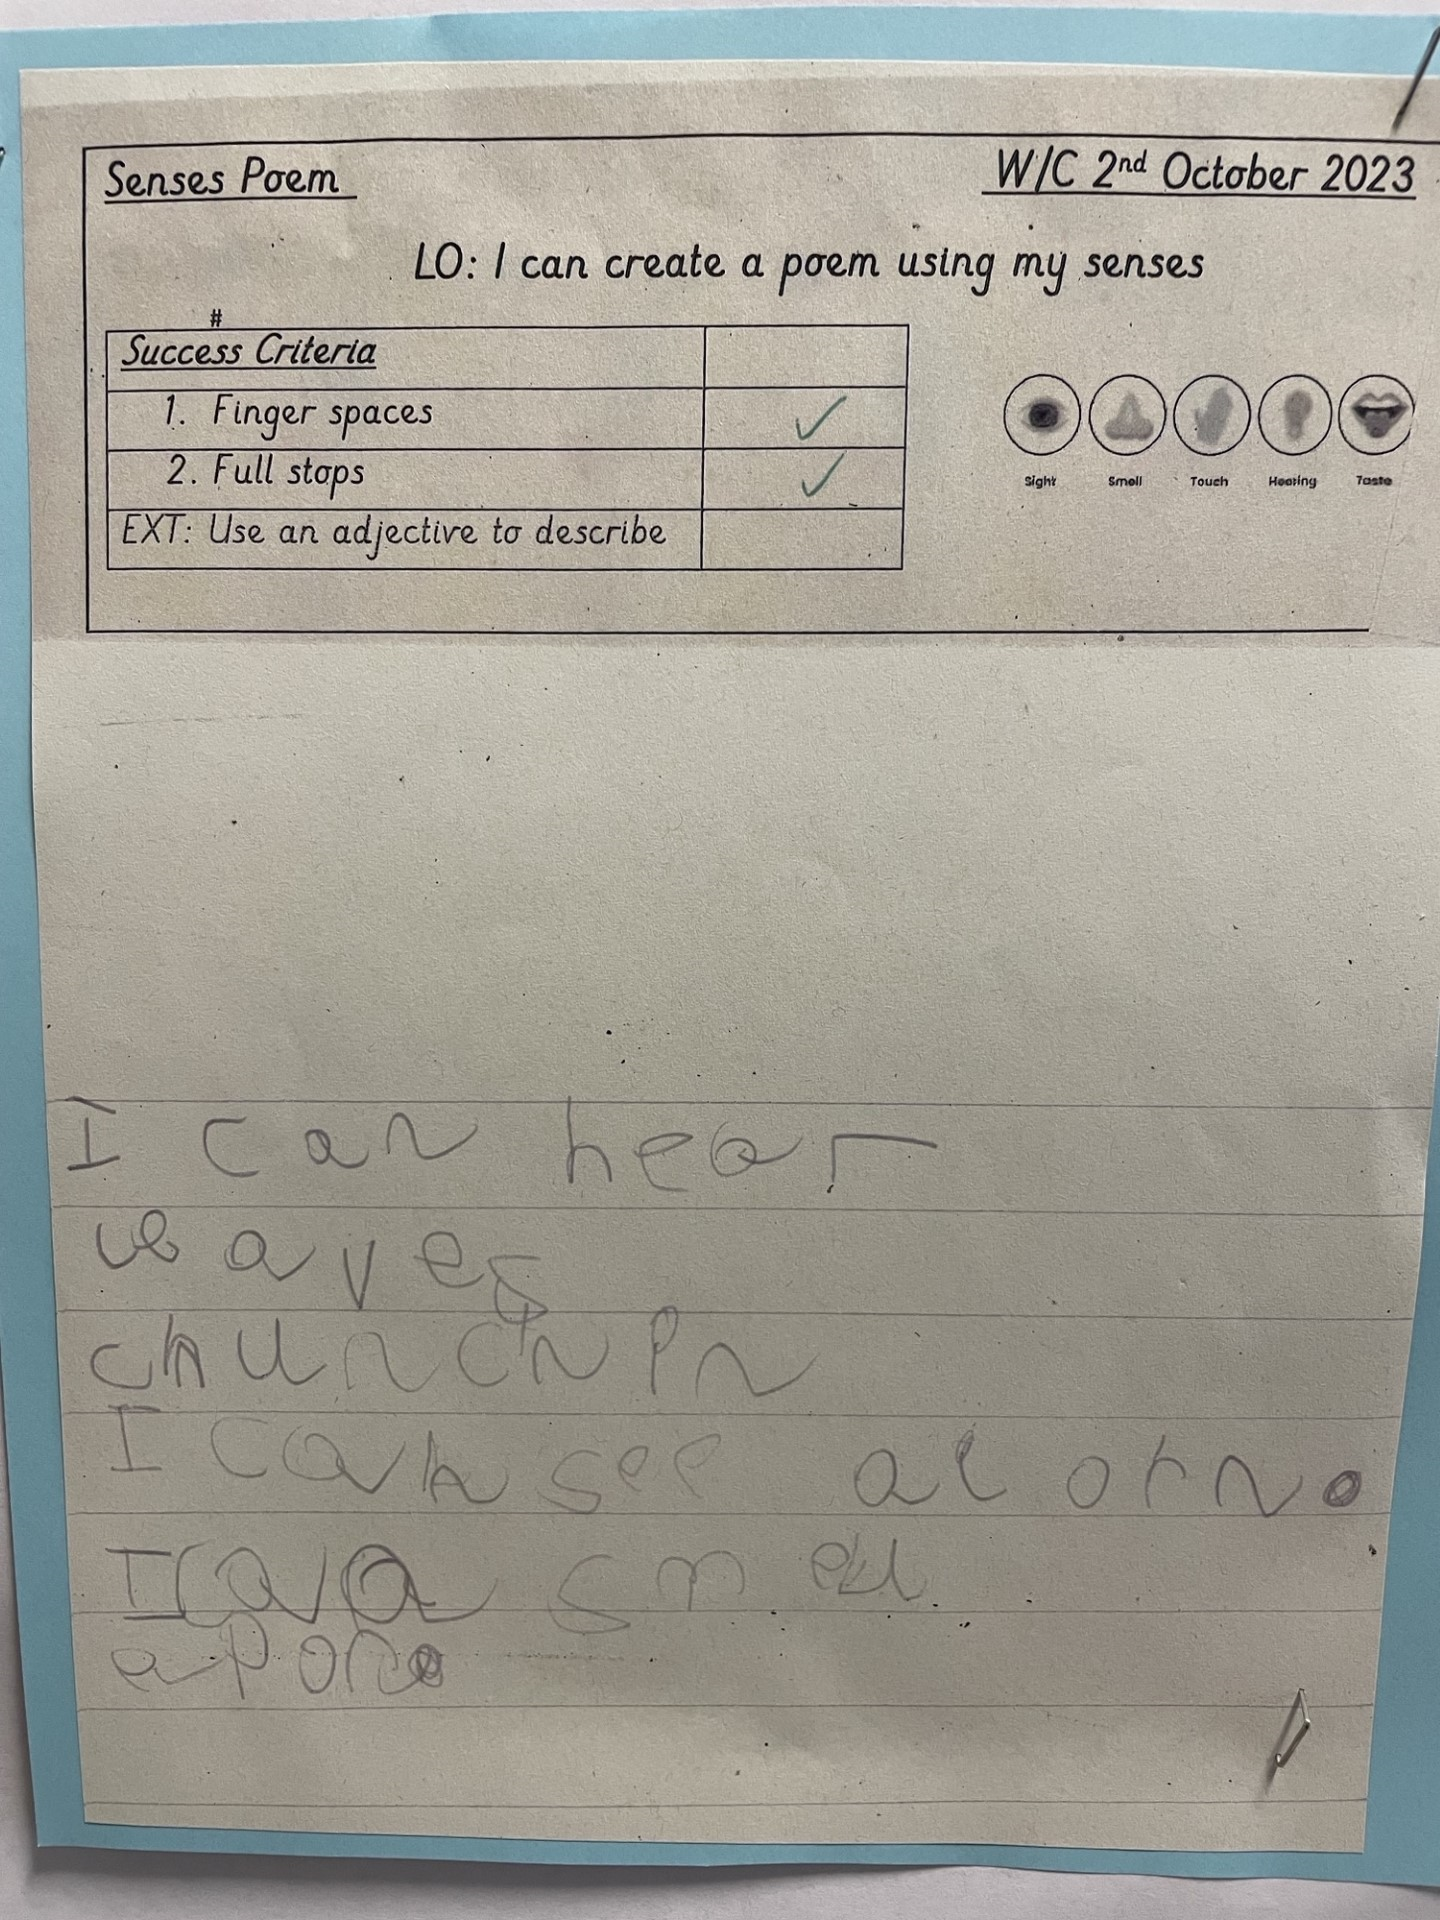 Senses Poem W/C 2nd October 2023
LO: I can create a poem using my senses
#
Success Criteria
1. Finger spaces ✓
2. Full stops ✓
EXT: Use an adjective to describe
Sight Smell Touch Hearing Taste
I can hear
waves
I can see
I smell